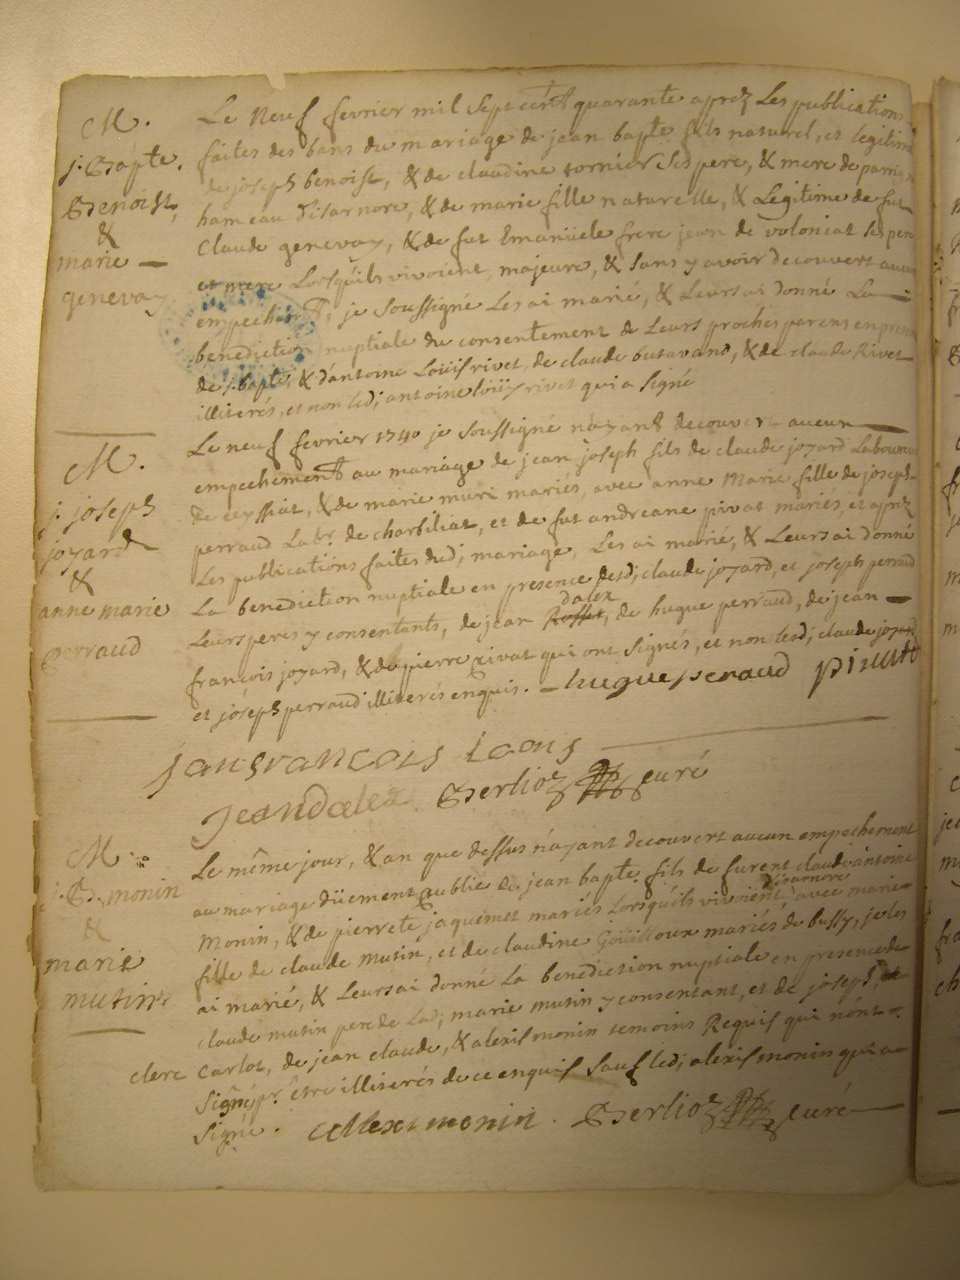 M.
j. Bapte.
Benoist,
&
marie —
genevay
Le Neuf fevrier mil Sept cent quarante aprez Les publications
faites des bans du mariage de jean bapte fils naturel, et legitime
de joseph benoist, & de claudine tornier Ses pere, & mere de
hameau d'isarnore, & de marie fille naturelle, & Legitime de fut
Claude genevay, & de fut Emanüele frere jean de voloniat Ses pere
et mere Lorsqu'ils vivoient, majeure, & Sans y avoir decouvert aucun
empechemt, je Soussigné Les ai marié, & Leurs ai donné La —
benediction nuptiale du consentement de Leurs proches parens en
de j. bapte, & d'antoine Loüis rivet, de claude butavand, & de claude Rivet
illiterés, et non led; antoine loüis rivet qui a Signé
M.
j. joseph
joyard
&
anne marie
perraud
Le neuf fevrier 1740 je Soussigné n'ayant decouvert aucun —
empechement au mariage de jean joseph fils de claude joyard Laboureur
de ceyssiat, & de marie muri mariés, avec anne Marie fille de joseph
perraud Labr. de charbiliat, et de fut andreane pivat mariés, et aprez
Les publications faites dud; mariage, Les ai marié, & Leurs ai donné
La benediction nuptiale en presence desd; claude joyard, et joseph perraud
Leurs peres y consentants, de jean dalex, de hugue perraud, de jean —
françois joyard, & de pierre rivat qui ont Signés, et non lesd; claude joyard
et joseph perraud illiterés enquis. — hugue peraud
jan francois
Jean dalex Berlioz curé
M.
j. B. monin
&
marie
mutin
Le même jour, & an que dessus n'ayant decouvert aucun empechement
au mariage düement publié de jean bapte fils de furent claude antoine
Monin, & de pierrete jaquemet mariés Lorsqu'ils vivoient d'isarnore, avec marie
fille de claude Mutin, et de claudine Goüilloux mariés de bussy, je les
ai marié, & Leurs ai donné La benediction nuptiale en presence de
claude mutin pere de Lad; marie mutin y consentant, et de joseph
clerc Carlot, de jean claude, & alexis monin temoins Requis qui n'ont
Signé pr. être illiterés de ce enquis Sauf led; alexis monin qui a
Signé. Allexi monin. Berlioz curé